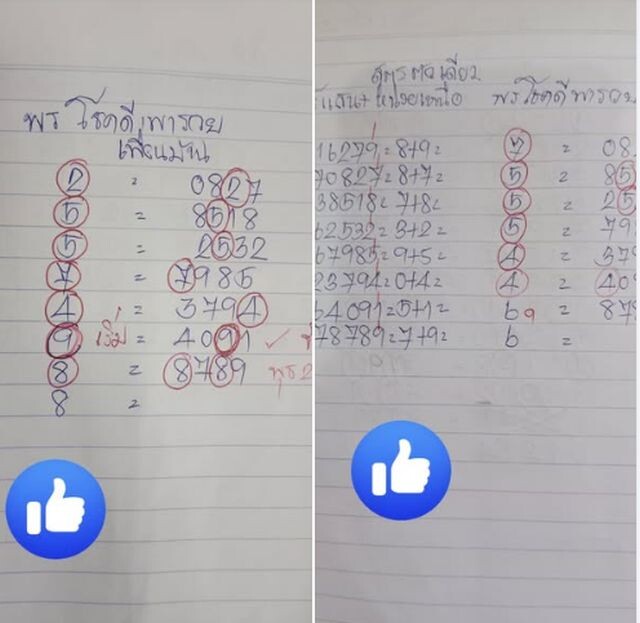 พร โชคดี พารวย
เพื่อนบ้าน
2 = 0827
5 = 8518
5 = 2532
7 = 7985
4 = 3794
9 เริ่ม = 4091 ✓
8 = 8789 พุธ 2
8 =
สูตรตัวเดียว
แสน+หน่วยเหนือ พร โชคดี พารวย
16279 = 8+9 = 7 = 08
70827 = 8+7 = 5 = 85
38518 = 7+8 = 5 = 25
62532 = 3+2 = 5 = 79
67985 = 9+5 = 4 = 37
23794 = 0+4 = 4 = 40
64091 = 5+1 = 6 9 = 87
78789 = 7+9 = 6 =